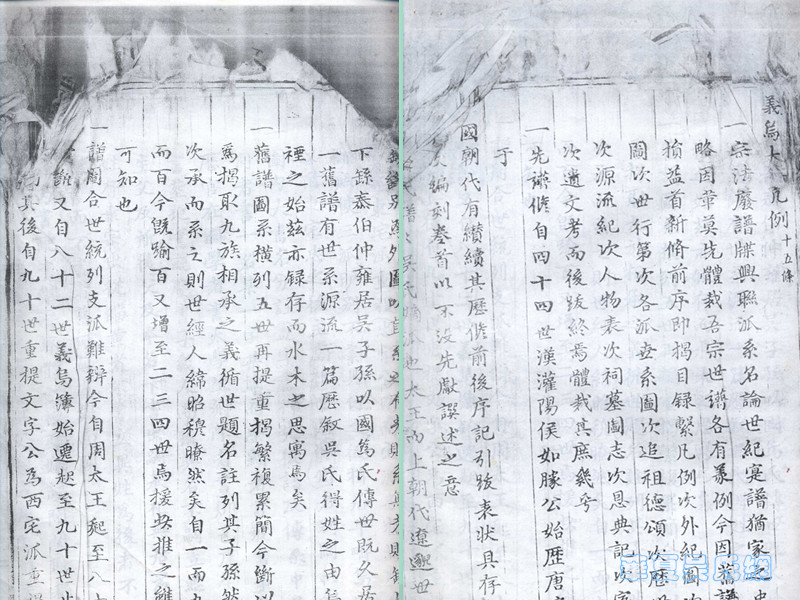 義烏大 凡例十五條
一宗法廢譜牒興聯派系名論世紀寔譜猶家之史
略因革莫先體裁吾宗世譜各有彖例今因舊譜
損益首新脩前序即揭目録繫凡例次外紀圖次
圖次世行第次各派世系圖次追祖德頌次歷
次源流紀次人物表次祠墓圖志次恩典記次家
次遺文考而後跋終焉體裁其庶幾乎
一先譜脩自四十四世漢灌陽侯如勝公始歷唐
于
國朝代有纘續其歷脩前後序記引跋表狀具存
編刻卷首以不没先獻譔述之意
吳氏 也太王而上朝代遼邈世
别系外圖以
下繇泰伯仲雍居吳子孫以國為氏傳世既久居
一舊譜有世系源流一篇歷叙吳氏得姓之由為
禋之始兹亦録存而水木之思寓焉矣
一舊譜圖系横列五世再提重揭繁複累簡今斷以
為揭取九族相承之義循世題名註列其子孫然
次承而系之則世經人緯昭穆瞭然矣自一而九
而百今既踰百又增至二三四世焉援此推之雖
可知也
一譜圖合世統列支派難辯今自周太王起至八十
又自八十二世義烏溥始遷起至九十世止
其後自九十世重提文字公為西宅派重提